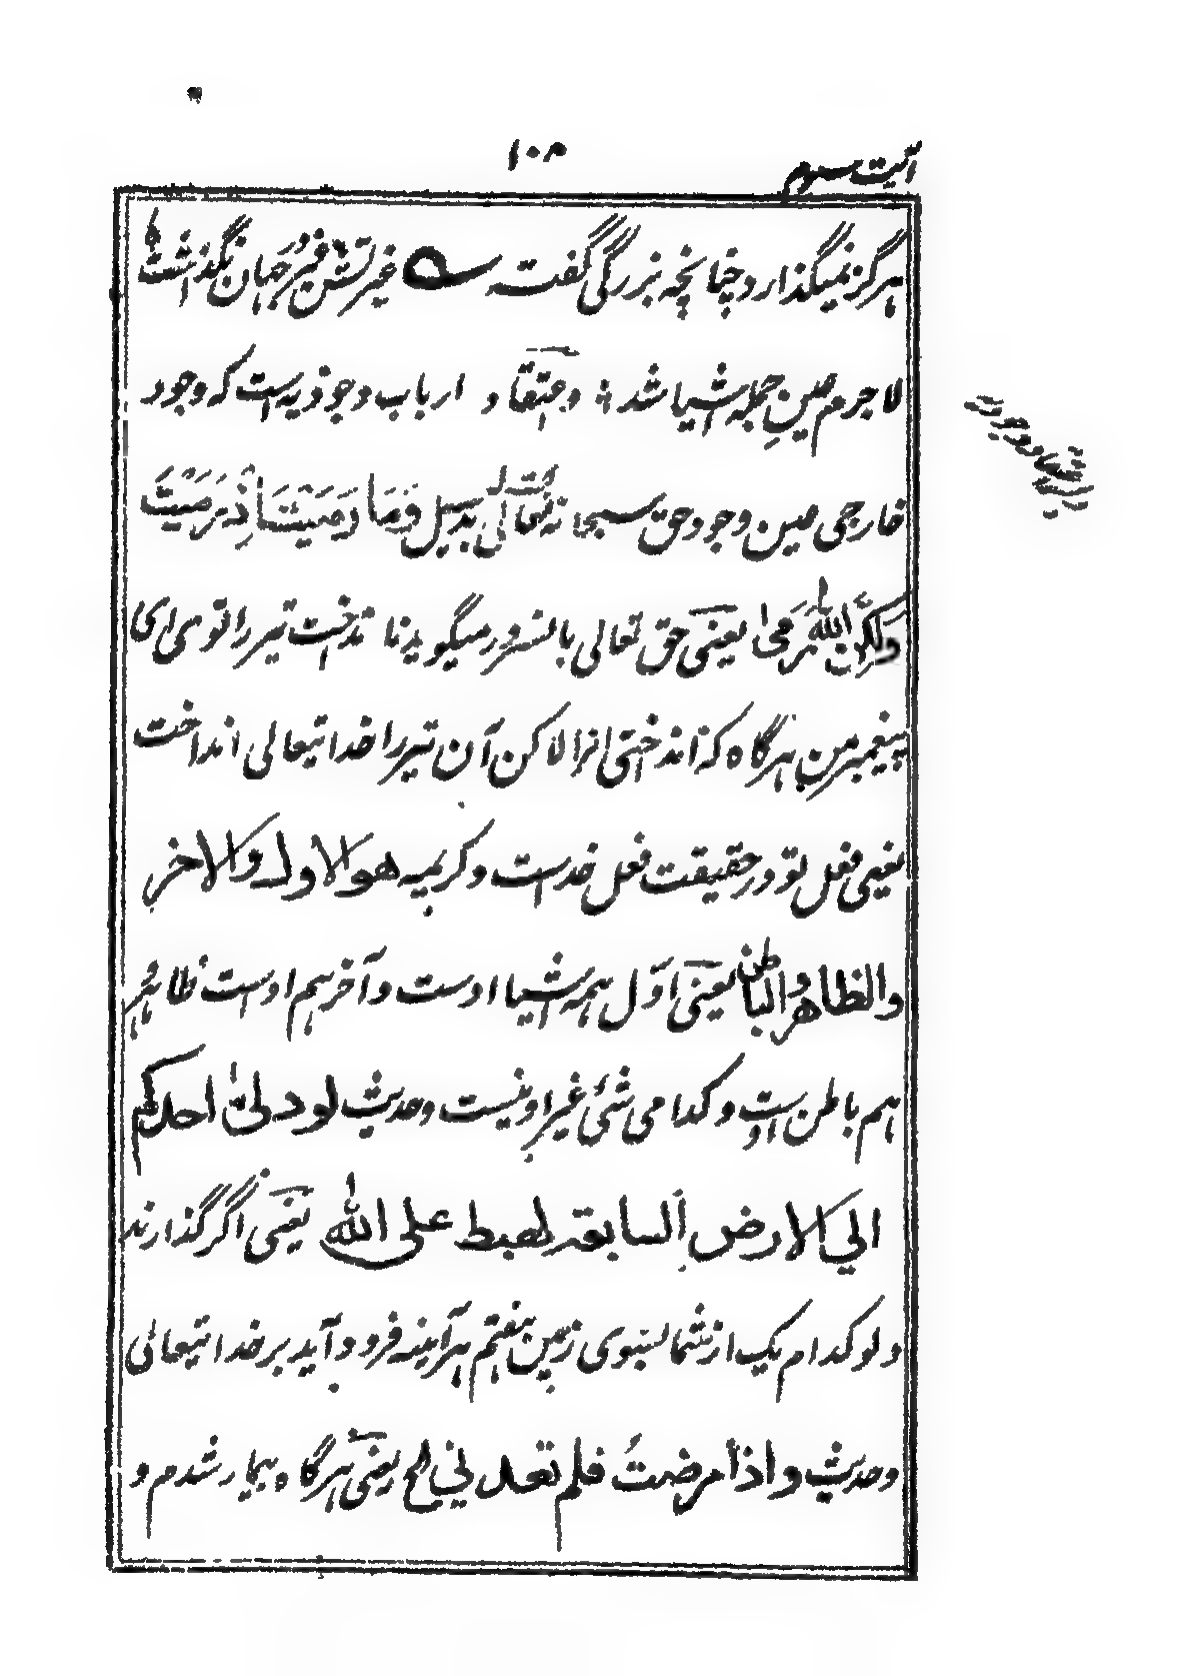 آیت سوم
۱۰۸
هرگز نمیگذارد چنانچه بزرگی گفت غیرتش غیر در جهان نگذاشت
لاجرم عین جمله اشیا شد و اعتقاد ارباب وجودیه است که وجود
اعتقاد وجودیه
خارجی عین وجود حق سبحانه تعالی بدلیل وَمَا رَمَیْتَ اِذْ رَمَیْتَ
وَلٰکِنَّ اللهَ رَمیٰ یعنی حق تعالی بانسرور میگوید نا نداخت تیر را توی ای
پیغمبر من هرگاه که انداختی انرا لاکن آن تیر را خدا تیعالی انداخت
یعنی فعل تو در حقیقت فعل خداست و کریمه هو الاول والاخر
والظاهر والباطن یعنی اوّل همه اشیا اوست و آخر هم اوست ظاهر
هم باطن اوست و کدامی شئی غیر او نیست وحدیث لو دلیٰ احدکم
الی الارض السابعة لهبط علی الله یعنی اگر گذارند
ولو کدام یک از شما بسوی زمین هفتم هرآئینه فرود آید بر خدا تیعالیٰ
وحدیث واذا مرضتُ فلم تعدنی الخ یعنی هرگاه بیمار شدم و